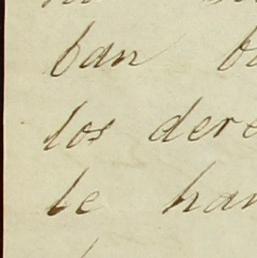 ban
los dere
le han